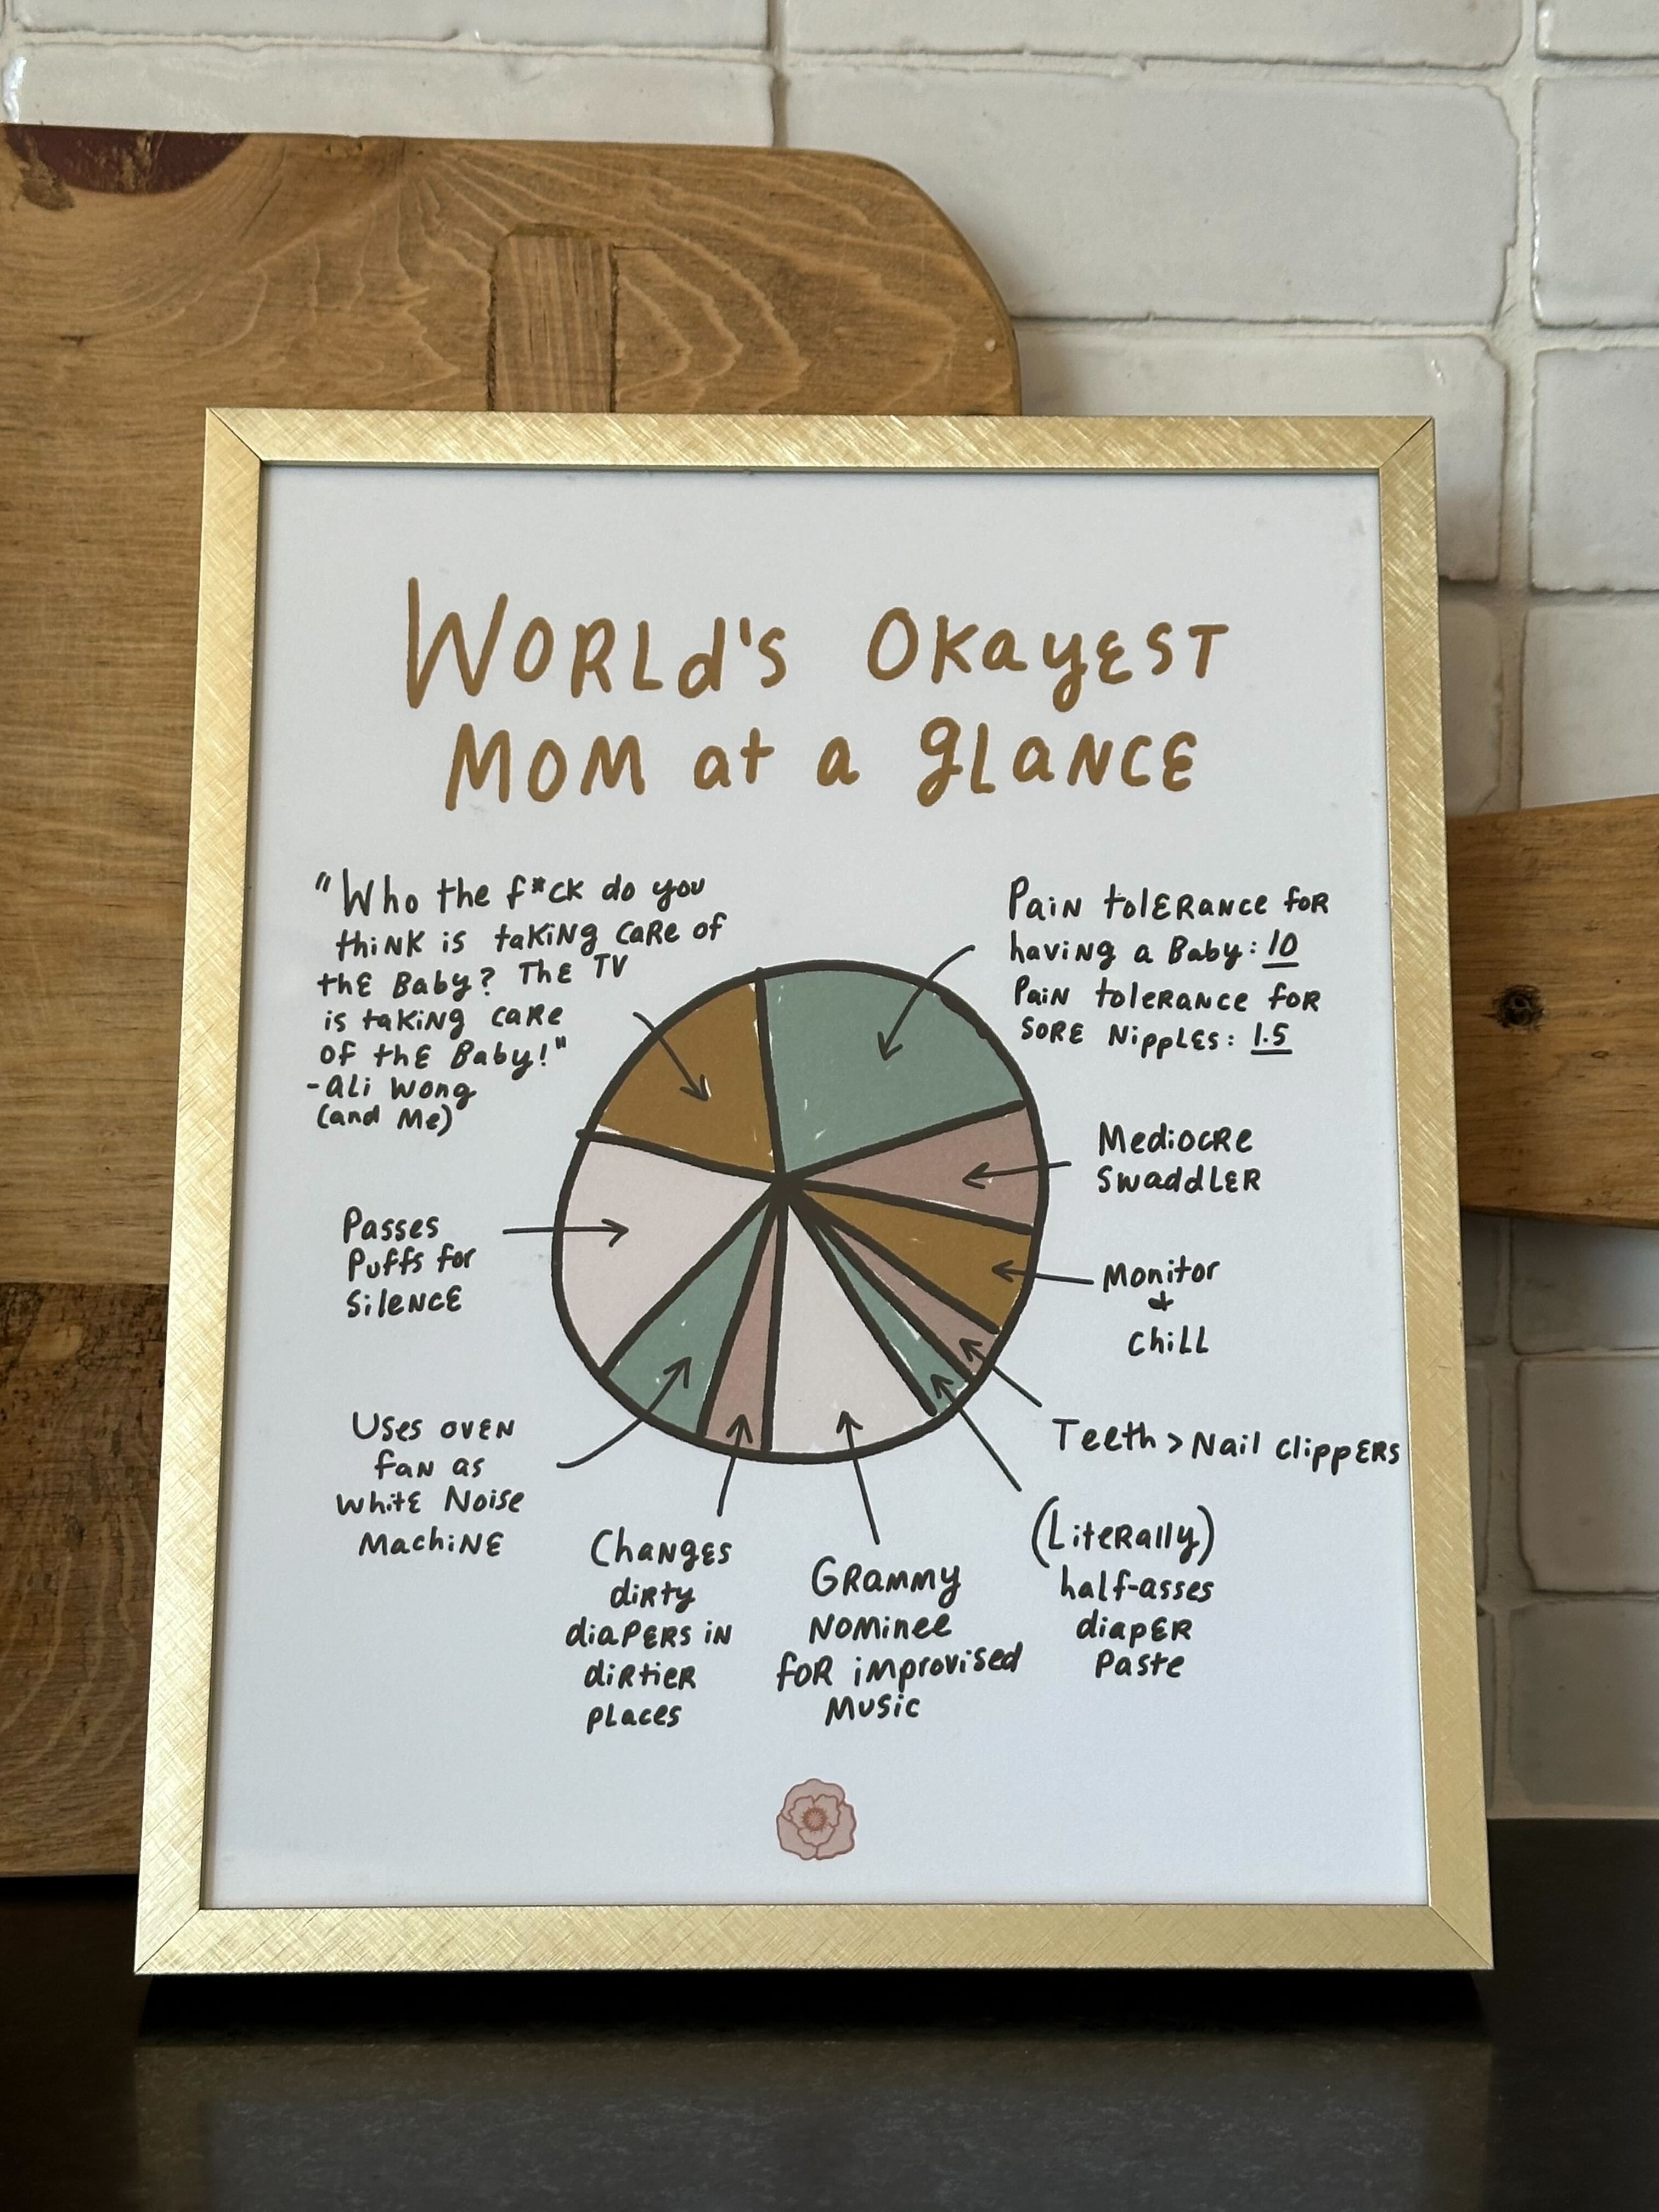 World's Okayest
Mom at a glance
"Who the f*ck do you
think is taking care of
the Baby? The TV
is taking care
of the Baby!"
-Ali Wong
(and Me)
Pain tolerance for
having a Baby: 10
Pain tolerance for
sore Nipples: 1.5
Mediocre
Swaddler
Monitor
&
chill
Teeth > Nail clippers
(Literally)
half-asses
diaper
Paste
Grammy
Nominee
for improvised
Music
Changes
dirty
diapers in
dirtier
places
Uses oven
fan as
white Noise
Machine
Passes
Puffs for
Silence